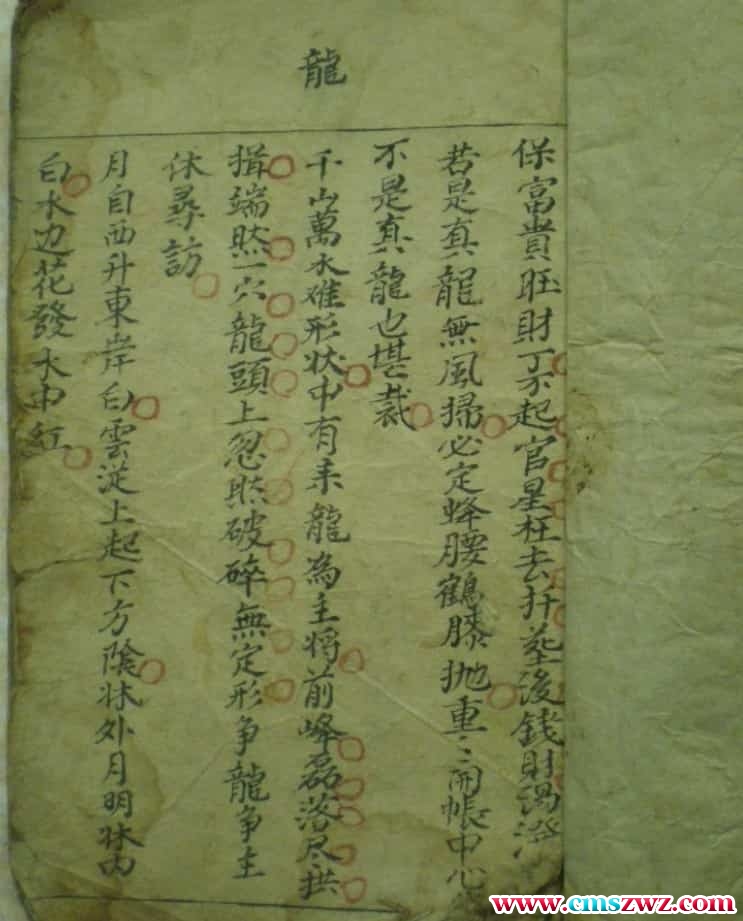 龍
保富貴旺財丁不起官星枉去扦塟後錢財渴澄
若是真龍無風掃必定蜂腰鶴膝拋重〻開帳中心
不是真龍也堪裁
千山萬水难形状中有来龍為主将前峰磊落尽拱
揖端然一穴龍頭上忽然破碎無定形争龍争主
休尋訪
月自西升東岸白雲从上起下方陰牀外月明牀内
白水边花發水中紅
www.cmszwz.com